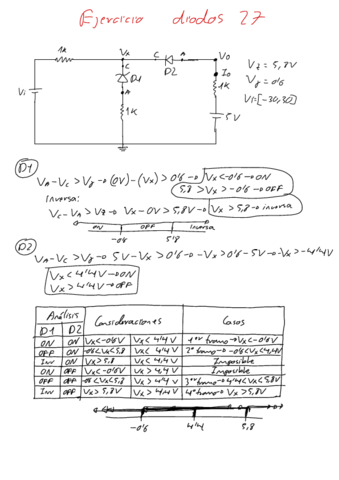 Ejercicio diodos 27
1k Vx C A Vo
C D1 D2 Io
A 1K
Vi 1K 5V
Vz = 5,8V
Vγ = 0'6
Vi=[-30,30]
D1
VA-VC > Vγ → (0V)-(Vx) > 0'6 → Vx<-0'6→ON
5,8 > Vx > -0'6 → OFF
Inversa:
VC-VA > Vz → Vx-0V > 5,8V → Vx > 5,8 → inversa
ON OFF Inversa
-0'6 5'8
D2
VA-VC > Vγ → 5V-Vx > 0'6 → -Vx > 0'6-5V → -Vx > -4'4V
Vx < 4'4V → ON
Vx > 4'4V → OFF
Análisis Consideraciones Casos
D1 D2
ON ON Vx<-0'6V Vx < 4'4V 1er tramo → Vx<-0'6V
OFF ON -0'6<Vx<5,8 Vx < 4'4V 2º tramo → -0'6<Vx<4,4V
Inv ON Vx > 5,8 Vx < 4'4V Imposible
ON OFF Vx<-0'6V Vx > 4,4V Imposible
OFF OFF -0'6<Vx<5,8 Vx > 4'4V 3er tramo → 4'4<Vx<5,8V
Inv OFF Vx > 5,8V Vx > 4,4V 4º tramo → Vx > 5,8V
-0'6 4'4 5,8